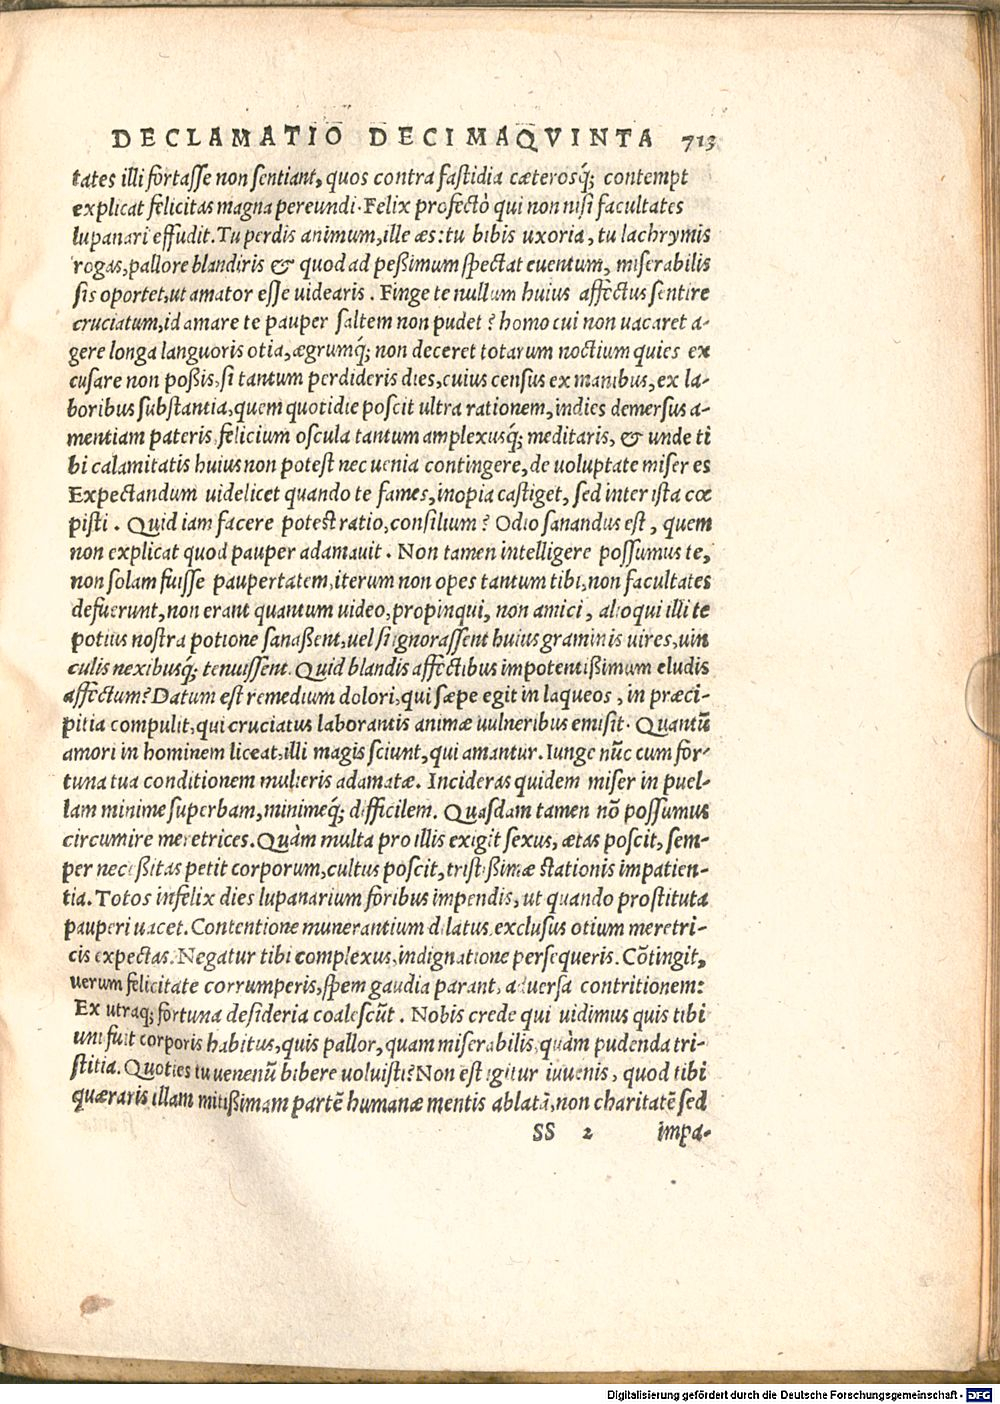 DECLAMATIO DECIMAQVINTA 713
tates illi fortasse non sentiant, quos contra fastidia cæterosq́; contempt
explicat felicitas magna pereundi. Felix profectò qui non nisi facultates
lupanari effudit. Tu perdis animum, ille æs: tu bibis uxoria, tu lachrymis
rogas, pallore blandiris & quod ad peßimum spectat euentum, miserabilis
sis oportet, ut amator esse uidearis. Finge te nullum huius affectus sentire
cruciatum, id amare te pauper saltem non pudet? homo cui non uacaret a-
gere longa languoris otia, ægrumq́; non deceret totarum noctium quies ex
cusare non poßis, si tantum perdideris dies, cuius census ex manibus, ex la-
boribus substantia, quem quotidie poscit ultra rationem, indies demersus a-
mentiam pateris, felicium oscula tantum amplexusq́; meditaris, & unde ti
bi calamitatis huius non potest nec uenia contingere, de uoluptate miser es
Expectandum uidelicet quando te fames, inopia castiget, sed inter ista cœ
pisti. Quid iam facere potest ratio, consilium? Odio sanandus est, quem
non explicat quod pauper adamauit. Non tamen intelligere possumus te,
non solam fuisse paupertatem, iterum non opes tantum tibi, non facultates
defuerunt, non erant quantum uideo, propinqui, non amici, alioqui illi te
potius nostra potione sanaßent, uel si ignorassent huius graminis uires, uin
culis nexibusq́; tenuissent. Quid blandis affectibus impotentißimum eludis
affectum? Datum est remedium dolori, qui sæpe egit in laqueos, in præci-
pitia compulit, qui cruciatus laborantis animæ uulneribus emisit. Quantũ
amori in hominem liceat, illi magis sciunt, qui amantur. Iunge nũc cum for-
tuna tua conditionem mulieris adamatæ. Incideras quidem miser in puel-
lam minime superbam, minimeq́; difficilem. Quasdam tamen nõ possumus
circumire meretrices. Quàm multa pro illis exigit sexus, ætas poscit, sem-
per neceßitas petit corporum, cultus poscit, tristißimæ stationis impatien-
tia. Totos infelix dies lupanarium foribus impendis, ut quando prostituta
pauperi uacet. Contentione munerantium dilatus, exclusus otium meretri-
cis expectas. Negatur tibi complexus, indignatione persequeris. Cõtingit,
uerum felicitate corrumperis, spem gaudia parant, aduersa contritionem:
Ex utraq; fortuna desideria coalescũt. Nobis crede qui uidimus quis tibi
uni fuit corporis habitus, quis pallor, quam miserabilis, quàm pudenda tri-
stitia. Quoties tu uenenũ bibere uoluisti? Non est igitur iuuenis, quod tibi
quæraris illam mitißimam partẽ humanæ mentis ablatã, non charitatẽ sed
SS 2 impa-
Digitalisierung gefördert durch die Deutsche Forschungsgemeinschaft - DFG